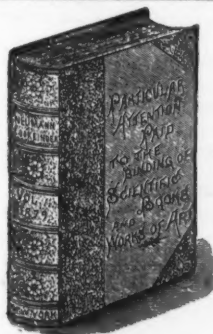 NEUMANN
1879
PARTICULAR
ATTENTION
PAID
TO THE
BINDING OF
SCIENTIFIC
BOOKS
AND
WORKS OF ART